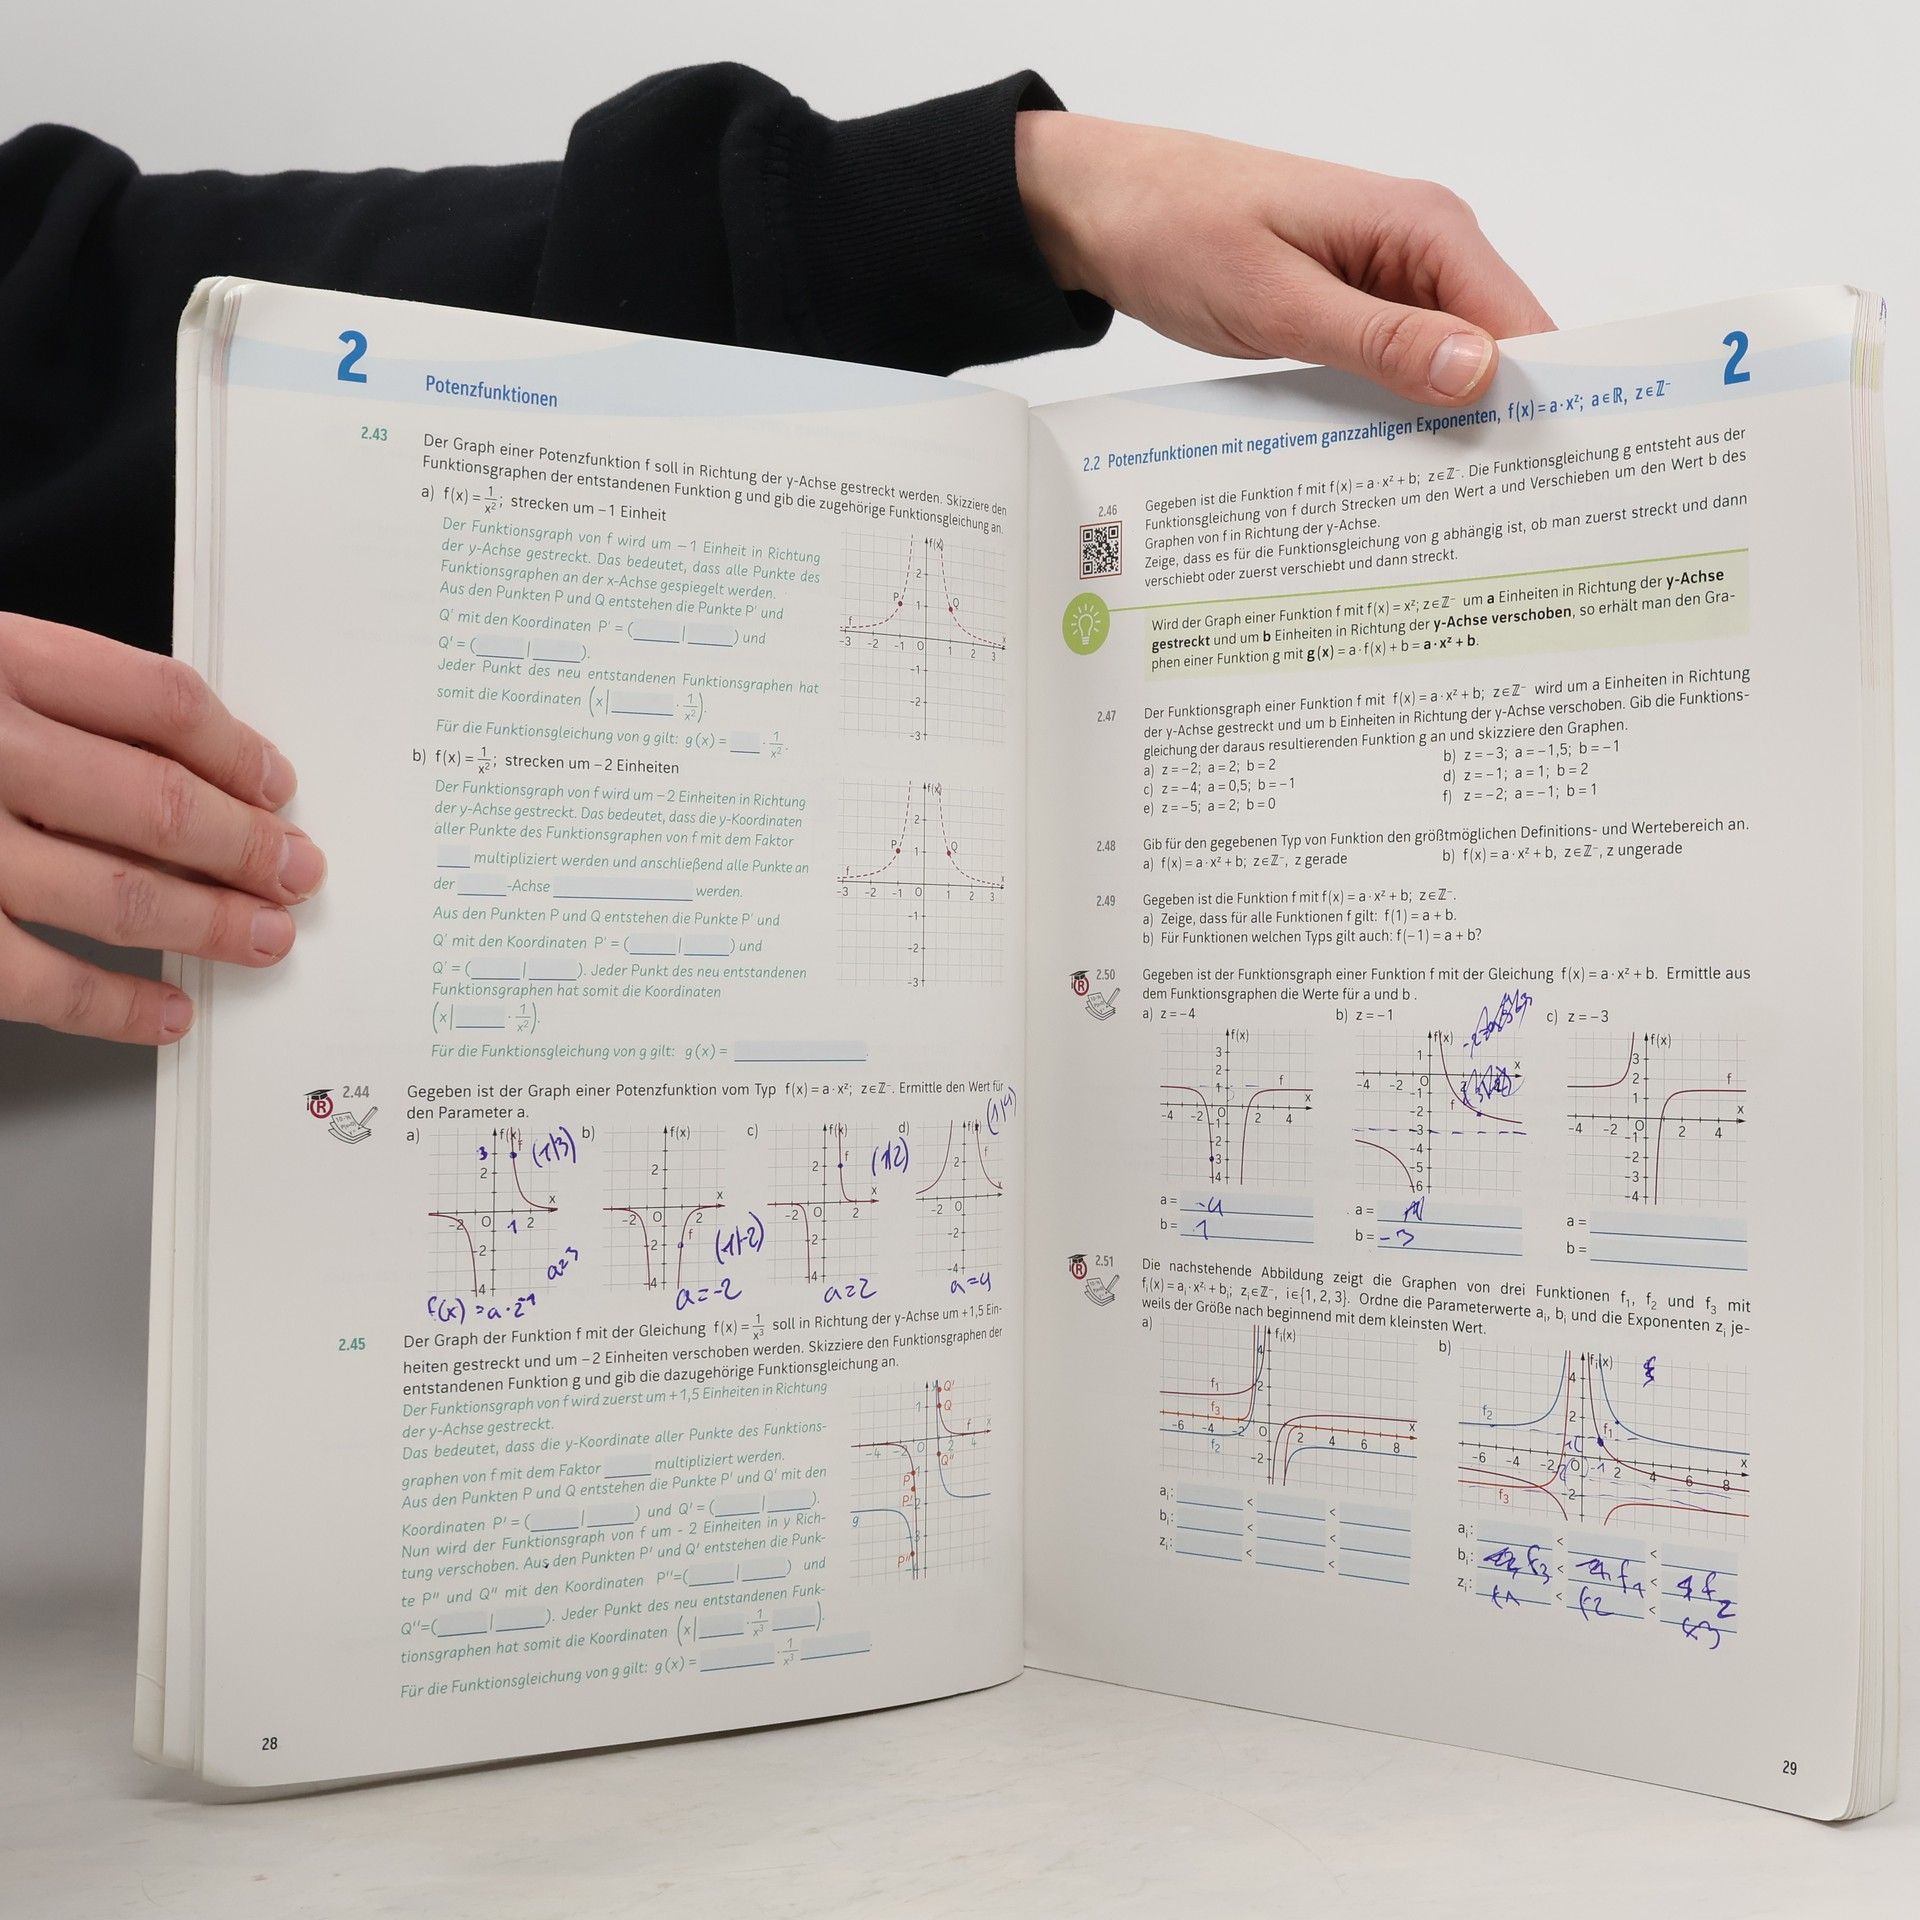 2
Potenzfunktionen
2.43
Der Graph einer Potenzfunktion f soll in Richtung der y-Achse gestreckt werden. Skizziere den
Funktionsgraphen der entstandenen Funktion g und gib die zugehörige Funktionsgleichung an.
a) f(x) = 1/x²; strecken um −1 Einheit
Der Funktionsgraph von f wird um −1 Einheit in Richtung
der y-Achse gestreckt. Das bedeutet, dass alle Punkte des
Funktionsgraphen an der x-Achse gespiegelt werden.
Aus den Punkten P und Q entstehen die Punkte P' und
Q' mit den Koordinaten P' = (____|____) und
Q' = (____|____).
Jeder Punkt des neu entstandenen Funktionsgraphen hat
somit die Koordinaten (x|____ · 1/x²).
Für die Funktionsgleichung von g gilt: g(x) = ____ · 1/x².
b) f(x) = 1/x²; strecken um −2 Einheiten
Der Funktionsgraph von f wird um −2 Einheiten in Richtung
der y-Achse gestreckt. Das bedeutet, dass die y-Koordinaten
aller Punkte des Funktionsgraphen von f mit dem Faktor
____ multipliziert werden und anschließend alle Punkte an
der ____-Achse ____ werden.
Aus den Punkten P und Q entstehen die Punkte P' und
Q' mit den Koordinaten P' = (____|____) und
Q' = (____|____). Jeder Punkt des neu entstandenen
Funktionsgraphen hat somit die Koordinaten
(x|____ · 1/x²).
Für die Funktionsgleichung von g gilt: g(x) = ____.
2.44
Gegeben ist der Graph einer Potenzfunktion vom Typ f(x) = a · xᶻ; z∈ℤ⁻. Ermittle den Wert für
den Parameter a.
a) b) c) d)
(1|3) (1|-2) (1|2) (1|4)
a=3
f(x) = a·2⁻¹ a=-2 a=2 a=4
2.45
Der Graph der Funktion f mit der Gleichung f(x) = 1/x³ soll in Richtung der y-Achse um +1,5 Ein-
heiten gestreckt und um −2 Einheiten verschoben werden. Skizziere den Funktionsgraphen der
entstandenen Funktion g und gib die dazugehörige Funktionsgleichung an.
Der Funktionsgraph von f wird zuerst um +1,5 Einheiten in Richtung
der y-Achse gestreckt.
Das bedeutet, dass die y-Koordinate aller Punkte des Funktions-
graphen von f mit dem Faktor ____ multipliziert werden.
Aus den Punkten P und Q entstehen die Punkte P' und Q' mit den
Koordinaten P' = (____|____) und Q' = (____|____).
Nun wird der Funktionsgraph von f um - 2 Einheiten in y Rich-
tung verschoben. Aus den Punkten P' und Q' entstehen die Punk-
te P'' und Q'' mit den Koordinaten P''=(____|____) und
Q''=(____|____). Jeder Punkt des neu entstandenen Funk-
tionsgraphen hat somit die Koordinaten (x|____ · 1/x³ ____).
Für die Funktionsgleichung von g gilt: g(x) = ____ · 1/x³ ____.
28
2
2.2 Potenzfunktionen mit negativem ganzzahligen Exponenten, f(x) = a·xᶻ; a∈ℝ, z∈ℤ⁻
2.46
Gegeben ist die Funktion f mit f(x) = a · xᶻ + b; z∈ℤ⁻. Die Funktionsgleichung g entsteht aus der
Funktionsgleichung von f durch Strecken um den Wert a und Verschieben um den Wert b des
Graphen von f in Richtung der y-Achse.
Zeige, dass es für die Funktionsgleichung von g abhängig ist, ob man zuerst streckt und dann
verschiebt oder zuerst verschiebt und dann streckt.
Wird der Graph einer Funktion f mit f(x) = xᶻ; z∈ℤ⁻ um a Einheiten in Richtung der y-Achse
gestreckt und um b Einheiten in Richtung der y-Achse verschoben, so erhält man den Gra-
phen einer Funktion g mit g(x) = a · f(x) + b = a · xᶻ + b.
2.47
Der Funktionsgraph einer Funktion f mit f(x) = a · xᶻ + b; z∈ℤ⁻ wird um a Einheiten in Richtung
der y-Achse gestreckt und um b Einheiten in Richtung der y-Achse verschoben. Gib die Funktions-
gleichung der daraus resultierenden Funktion g an und skizziere den Graphen.
a) z = −2; a = 2; b = 2 b) z = −3; a = −1,5; b = −1
c) z = −4; a = 0,5; b = −1 d) z = −1; a = 1; b = 2
e) z = −5; a = 2; b = 0 f) z = −2; a = −1; b = 1
2.48
Gib für den gegebenen Typ von Funktion den größtmöglichen Definitions- und Wertebereich an.
a) f(x) = a · xᶻ + b; z∈ℤ⁻, z gerade b) f(x) = a · xᶻ + b, z∈ℤ⁻, z ungerade
2.49
Gegeben ist die Funktion f mit f(x) = a · xᶻ + b; z∈ℤ⁻.
a) Zeige, dass für alle Funktionen f gilt: f(1) = a + b.
b) Für Funktionen welchen Typs gilt auch: f(−1) = a + b?
2.50
Gegeben ist der Funktionsgraph einer Funktion f mit der Gleichung f(x) = a · xᶻ + b. Ermittle aus
dem Funktionsgraphen die Werte für a und b.
a) z = −4 b) z = −1 c) z = −3
a = -4 a = a =
b = 1 b = -3 b =
2.51
Die nachstehende Abbildung zeigt die Graphen von drei Funktionen f₁, f₂ und f₃ mit
fᵢ(x) = aᵢ · xᶻⁱ + bᵢ; zᵢ∈ℤ⁻, i∈{1, 2, 3}. Ordne die Parameterwerte aᵢ, bᵢ und die Exponenten zᵢ je-
weils der Größe nach beginnend mit dem kleinsten Wert.
a) b)
aᵢ: ____ < ____ < ____
bᵢ: ____ < ____ < ____
zᵢ: ____ < ____ < ____
aᵢ: ____ < ____ < ____
bᵢ: f3 < f1 < f2
zᵢ: f1 < f2 < f3
29